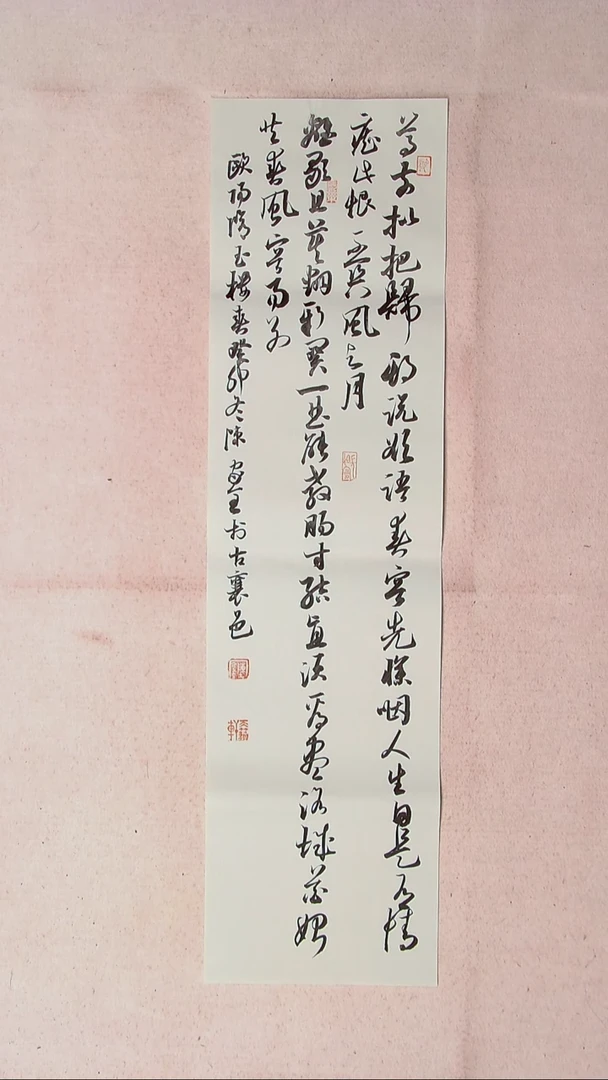 尊前拟把歸期说欲语春容先惨咽人生自是有情
痴此恨不关風与月
離歌且莫翻新阕一曲能教肠寸结直须看尽洛城花始
共春風容易别
歐阳脩玉楼春癸卯冬陈於古襄邑